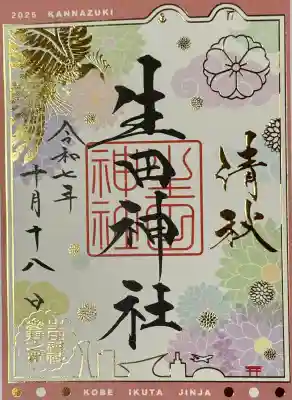 2025 KANNAZUKI
清秋
生田神社
生田神社
令和七年
十月十八日
KOBE IKUTA JINJA